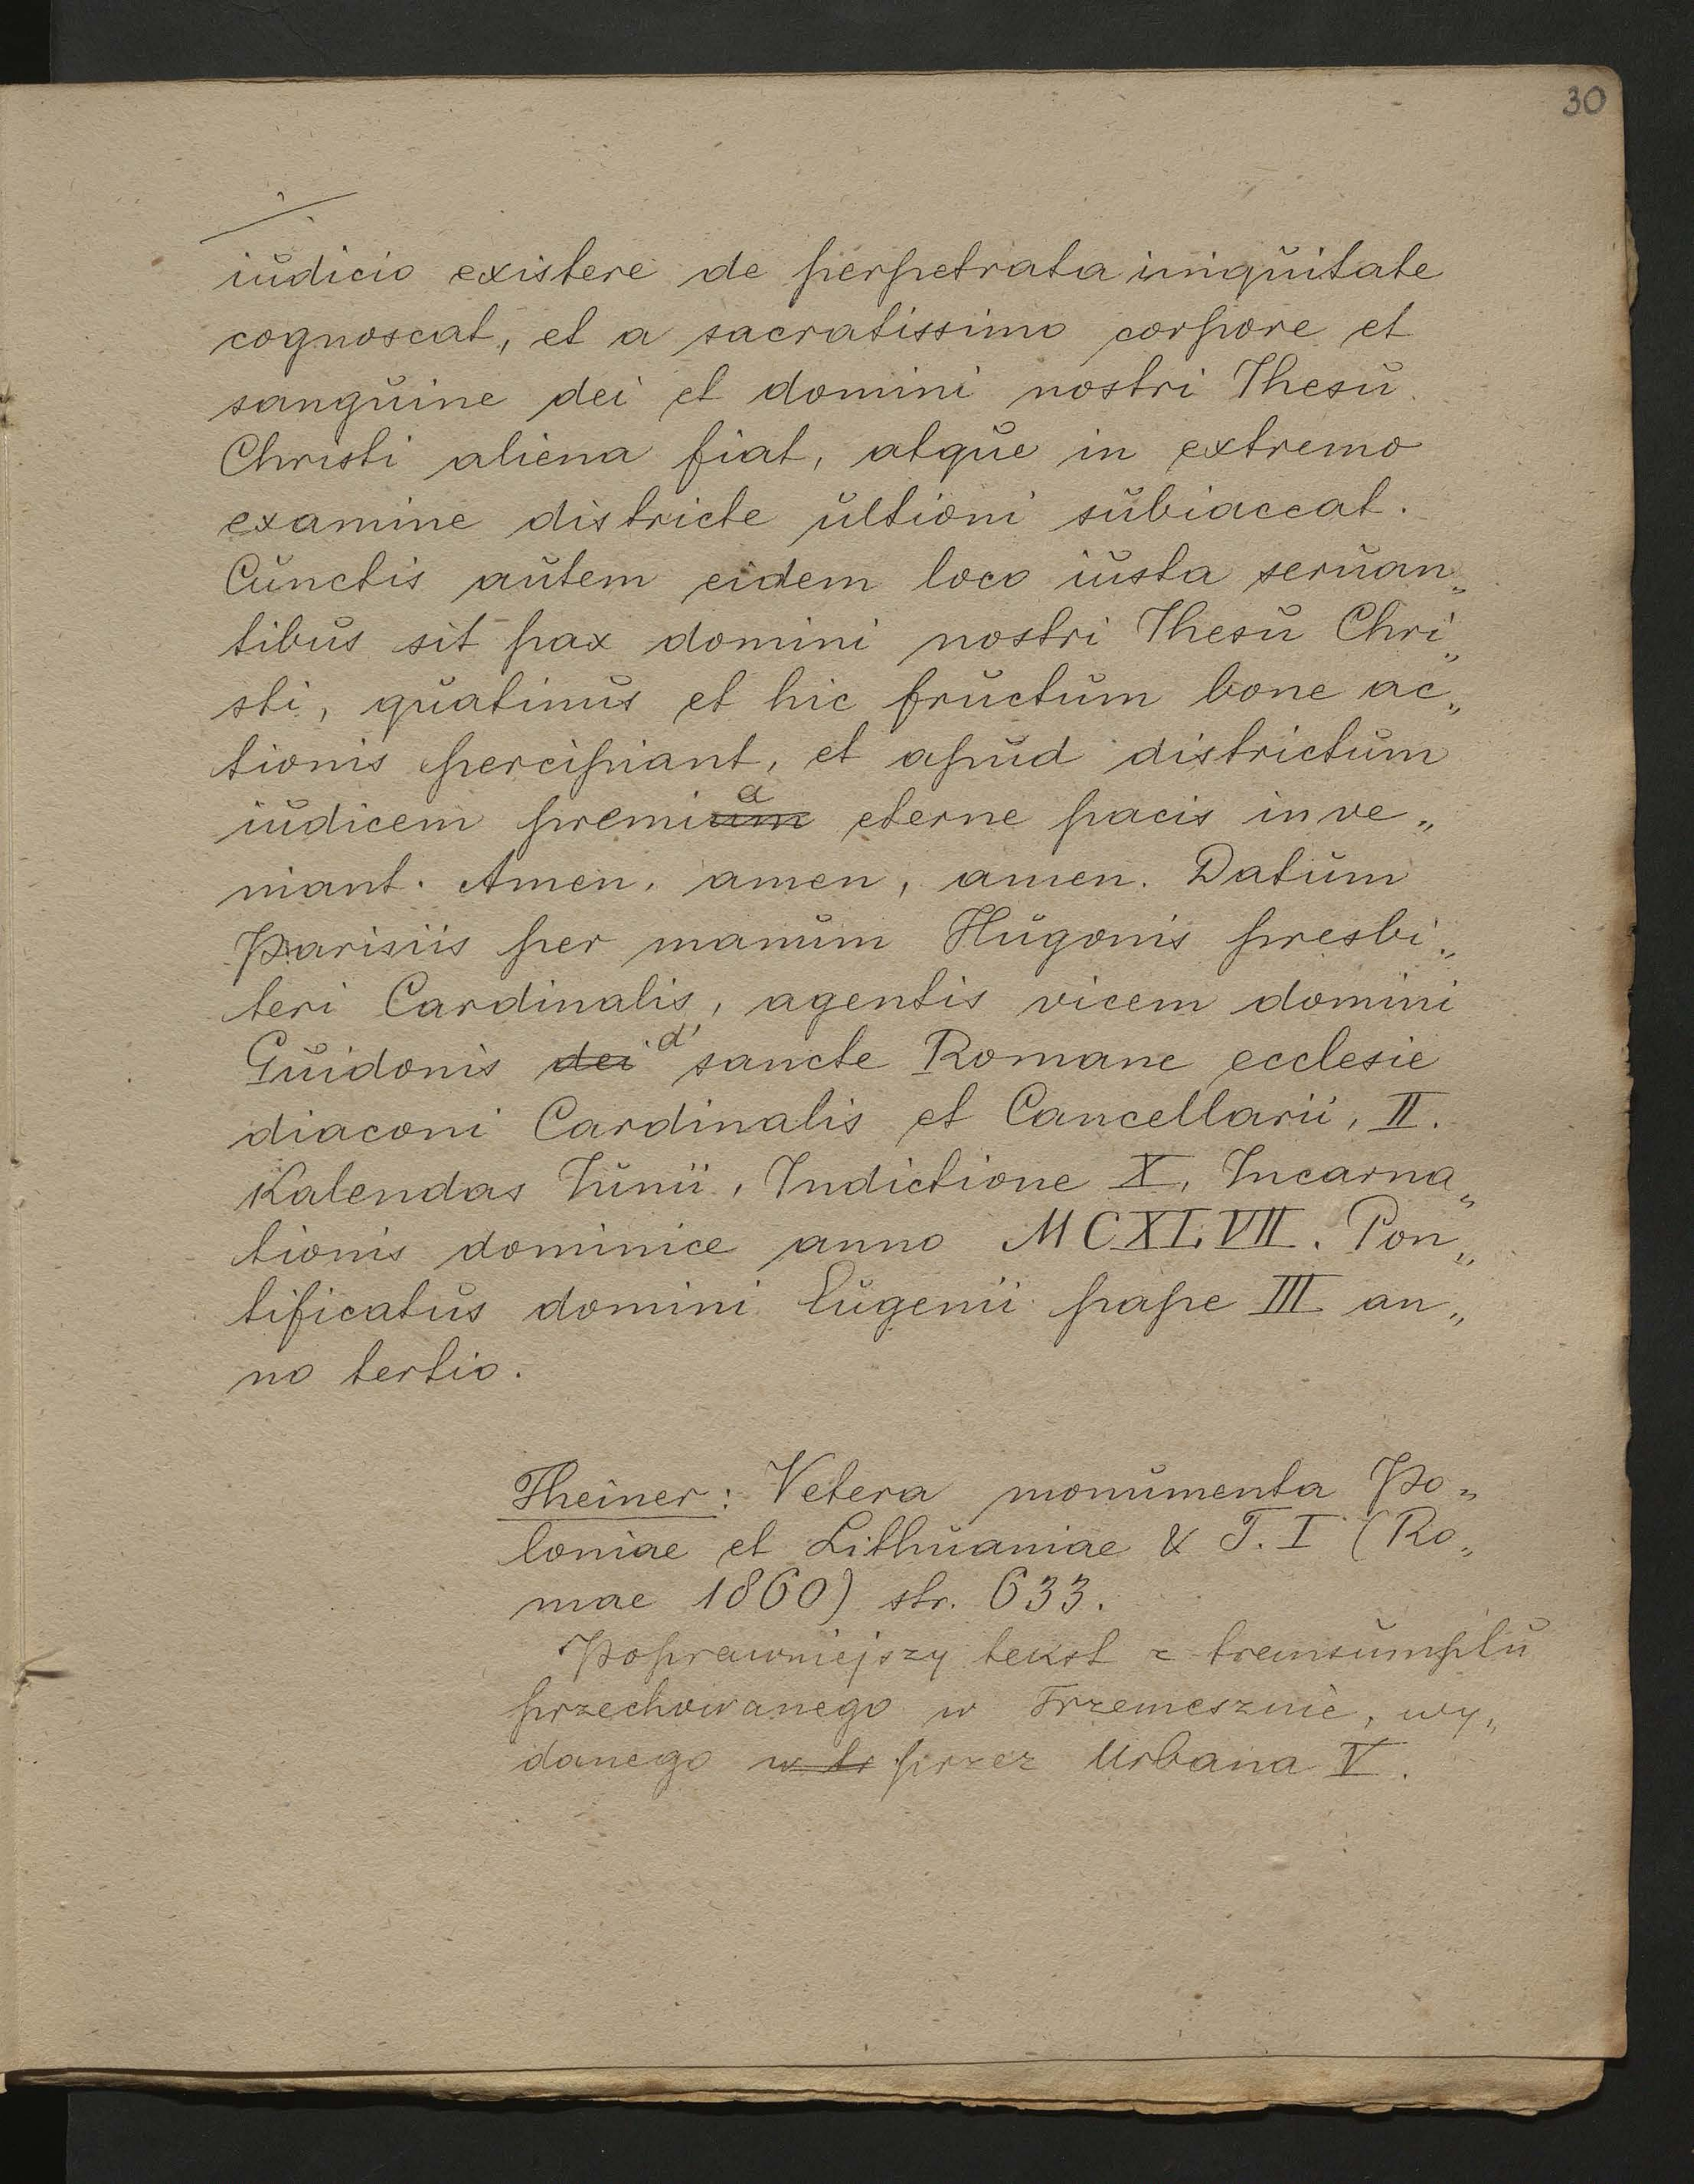 30
iudicio existere de perpetrata iniquitate
cognoscat, et a sacratissimo corpore et
sanguine dei et domini nostri Ihesu
Christi aliena fiat, atque in extremo
examine districte ultioni subiaceat.
Cunctis autem eidem loco iusta seruan„
tibus sit pax domini nostri Ihesu Chri„
sti, quatinus et hic fructum bone ac„
tionis percipiant, et apud districtum
iudicem premium a eterne pacis inve„
niant. Amen, amen, amen. Datum
Parisiis per manum Hugonis presbi„
teri Cardinalis, agentis vicem domini
Guidonis dei d' sancte Romane ecclesie
diaconi Cardinalis et Cancellarii, II.
Kalendas Iunii, Indictione X, Incarna„
tionis dominice anno MCXLVII. Pon„
tificatus domini Eugenii pape III an„
no tertio.
Theiner: Vetera monumenta Po„
loniae et Lithuaniae & T. I (Ro„
mae 1860) str. 633.
Poprawniejszy tekst z transumptu
przechowanego w Trzemesznie, wy„
danego w tr przez Urbana V.